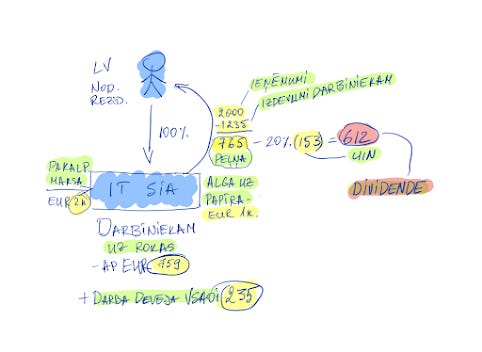 LV
NOD.
REZID.
100%
IEŅĒMUMI
IZDEVUMI DARBINIEKAM
2000
-1235
765
PEĻŅA
- 20% (153) = 612
UIN
DIVIDENDE
PAKALP.
MAKSA
EUR 2k
IT SIA
ALGA UZ
PAPĪRA-
EUR 1k.
DARBINIEKAM
UZ ROKAS
-AP EUR 759
+ DARBA DEVĒJA VSAOI 235